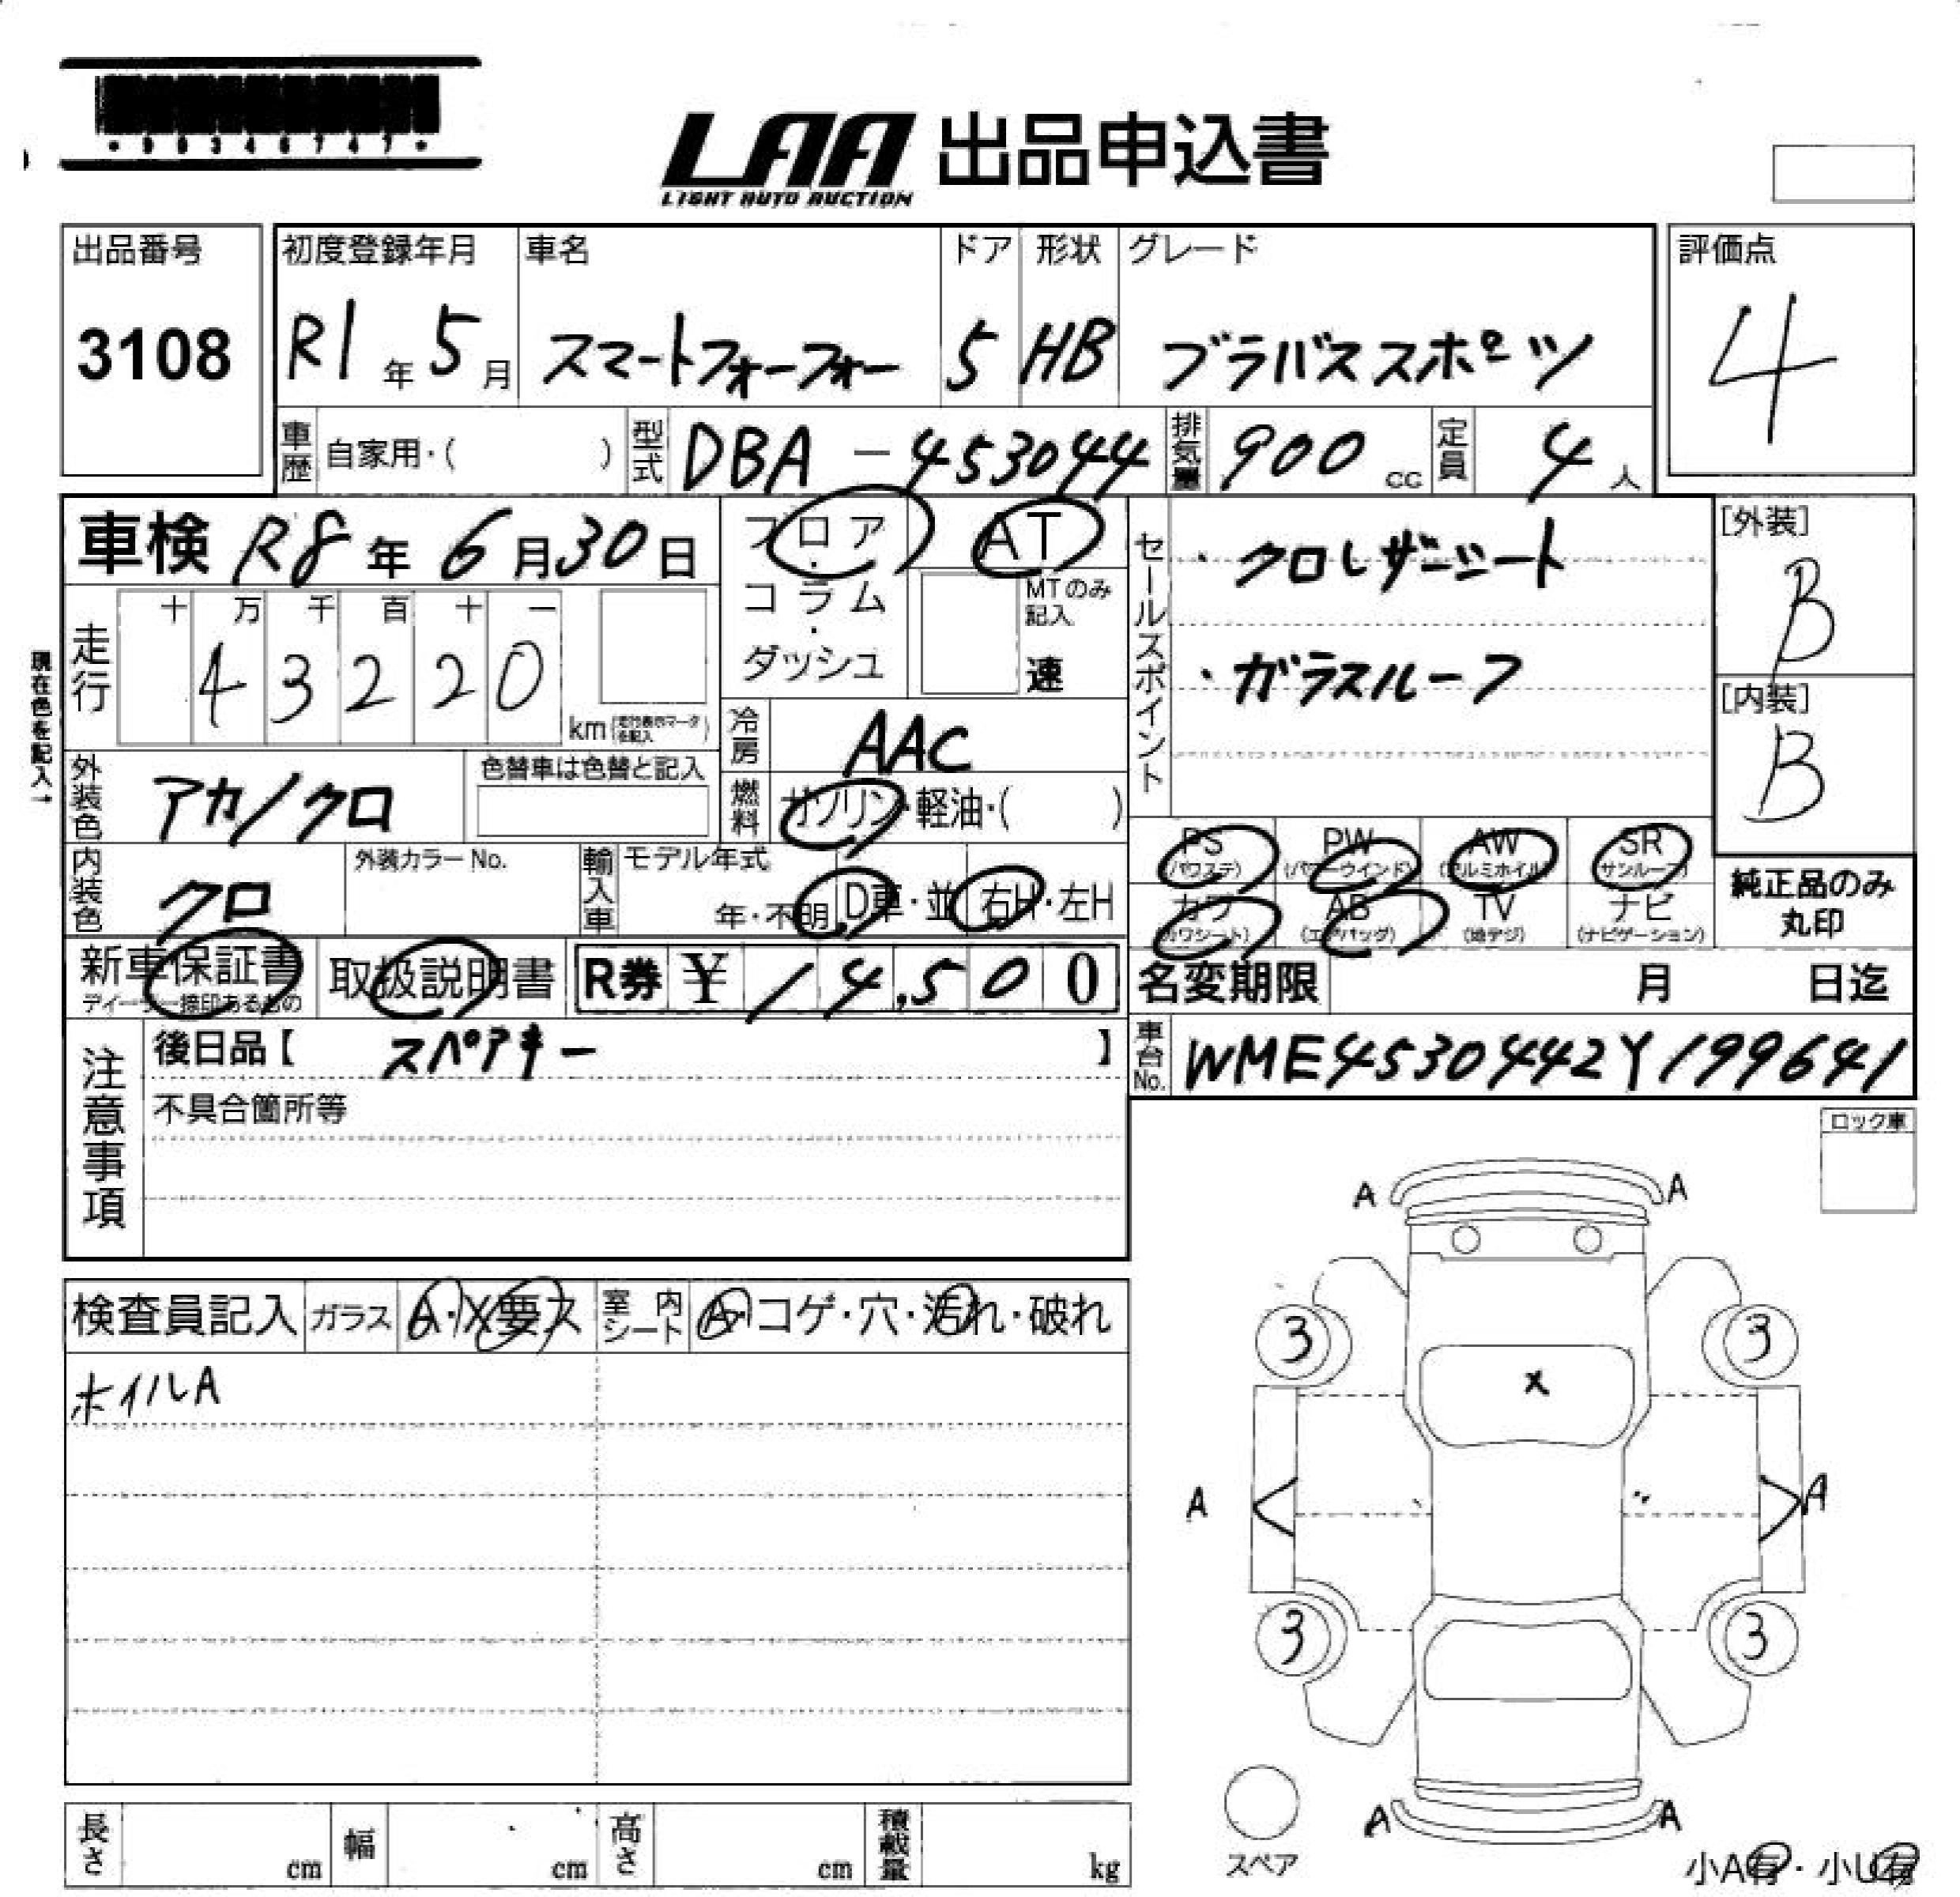 ・90346747・
LAA 出品申込書
LIGHT AUTO AUCTION
出品番号
3108
初度登録年月
R1年5月
車名
スマートフォーフォー
ドア
5
形状
HB
グレード
ブラバススポーツ
評価点
4
車歴 自家用・( )
型式 DBA-453044
排気量 900cc
定員 4人
車検 R8年6月30日
フロア・コラム・ダッシュ
AT
MTのみ記入
速
セールスポイント
・クロレザーシート
・ガラスルーフ
[外装]
B
[内装]
B
現在色を記入→
走行
十 万 千 百 十 一
4 3 2 2 0
km(走行表示マークを記入)
冷房 AAC
外装色 アカ/クロ
色替車は色替と記入
燃料 ガソリン・軽油・( )
PS (パワステ)
PW (パワーウインド)
AW (アルミホイル)
SR (サンルーフ)
カワ (カワシート)
AB (エアバッグ)
TV (地デジ)
ナビ (ナビゲーション)
純正品のみ丸印
内装色 クロ
外装カラーNo.
輸入車
モデル年式
年・不明
D車・並
右H・左H
新車保証書
ディーラー捺印あるもの
取扱説明書
R券 ¥14,500
名変期限 月 日迄
注意事項
後日品【 スペアキー 】
不具合箇所等
車台No. WME4530442Y199641
ロック車
検査員記入
ガラス A・X要ス
室内シート A・コゲ・穴・汚れ・破れ
ホイルA
A A
3 3
X
A A
3 3
A A
スペア
小A有・小U有
長さ cm
幅 cm
高さ cm
積載量 kg